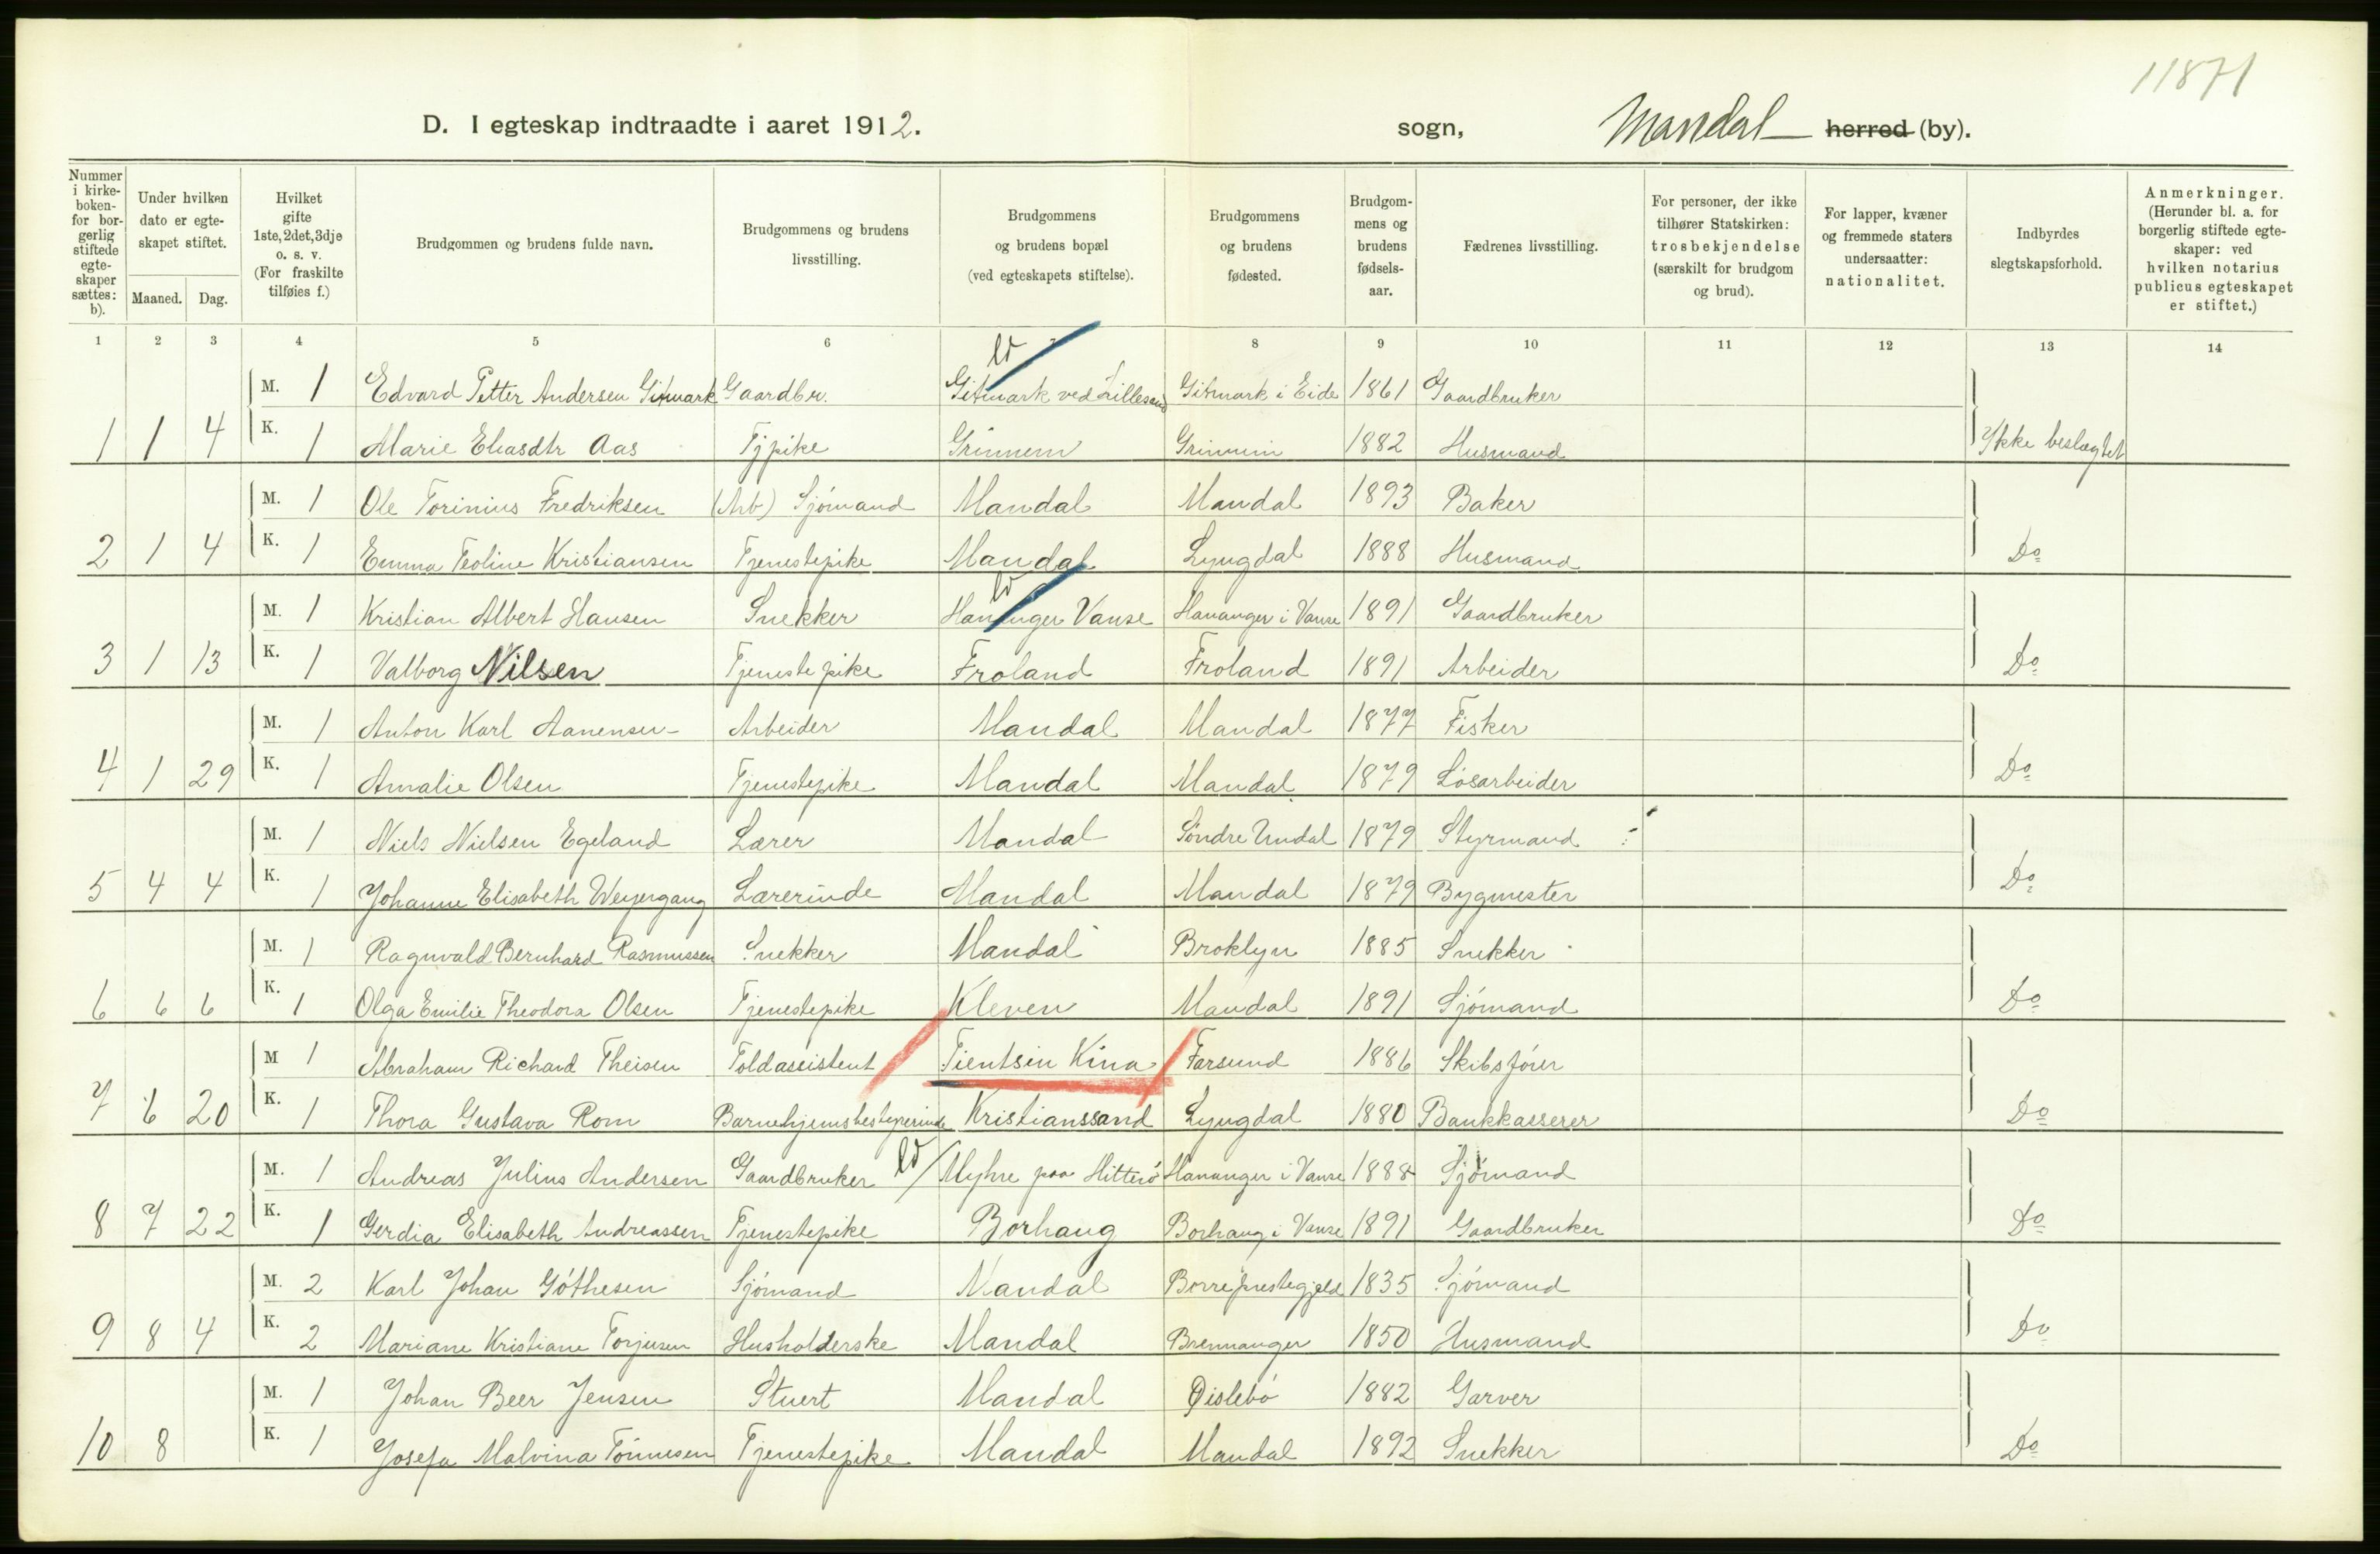 11871
D. I egteskap indtraadte i aaret 1912. sogn, Mandal herred (by).
Nummer i kirkeboken- for borgerlig stiftede egteskaper sættes: b). Under hvilken dato er egteskapet stiftet. Maaned. Dag. Hvilket gifte 1ste, 2det, 3dje o. s. v. (For fraskilte tilføies f.) Brudgommen og brudens fulde navn. Brudgommens og brudens livsstilling. Brudgommens og brudens bopæl (ved egteskapets stiftelse). Brudgommens og brudens fødested. Brudgommens og brudens fødselsaar. Fædrenes livsstilling. For personer, der ikke tilhører Statskirken: trosbekjendelse (særskilt for brudgom og brud). For lapper, kvæner og fremmede staters undersaatter: nationalitet. Indbyrdes slegtskapsforhold. Anmerkninger. (Herunder bl. a. for borgerlig stiftede egteskaper: ved hvilken notarius publicus egteskapet er stiftet.)
1 2 3 4 5 6 7 8 9 10 11 12 13 14
M. 1 Edvard Petter Andersen Gitmark Gaardbr. Gitmark ved Lillesand Gitmark i Eide 1861 Gaardbruker
1 1 4 K. 1 Marie Eliasdtr Aas Tjpike Grinnem Grimnim 1882 Husmand Ikke beslægtet
M. 1 Ole Torinius Fredriksen (Arb) Sjömand Mandal Mandal 1893 Baker
2 1 4 K. 1 Emma Teoline Kristiansen Tjenestepike Mandal Lyngdal 1888 Husmand Do
M. 1 Kristian Albert Hansen Snekker Hananger Vanse Hananger i Vanse 1891 Gaardbruker
3 1 13 K. 1 Valborg Nilsen Tjenestepike Froland Froland 1891 Arbeider Do
M. 1 Anton Karl Aanensen Arbeider Mandal Mandal 1877 Fisker
4 1 29 K. 1 Amalie Olsen Tjenestepike Mandal Mandal 1879 Lösarbeider Do
M. 1 Niels Nielsen Egeland Lærer Mandal Söndre Undal 1879 Styrmand
5 4 4 K. 1 Johanne Elisabeth Weyergang Lærerinde Mandal Mandal 1879 Bygmester Do
M. 1 Ragnvald Bernhard Rasmussen Snekker Mandal Broklyn 1885 Snekker
6 6 6 K. 1 Olga Emilie Theodora Olsen Tjenestepike Kleven Mandal 1891 Sjömand Do
M 1 Abraham Richard Theisen Toldassistent Tientsin Kina Farsund 1886 Skibsförer
7 6 20 K. 1 Thora Gustava Rom Barnehjemsbestyrerinde Kristianssand Lyngdal 1880 Bankkasserer Do
M. 1 Andreas Julius Andersen Gaardbruker Myhre paa Hitterö Hananger i Vanse 1888 Sjömand
8 7 22 K. 1 Gerdia Elisabeth Andreassen Tjenestepike Borhaug Borhaug i Vanse 1891 Gaardbruker Do
M. 2 Karl Johan Göthesen Sjömand Mandal Borre prestegjeld 1835 Sjömand
9 8 4 K. 2 Mariane Kristiane Torjusen Husholderske Mandal Brennanger 1850 Husmand Do
M. 1 Johan Beer Jensen Stuert Mandal Öislebö 1882 Garver
10 8 K. 1 Josefa Malvina Tönnesen Tjenestepike Mandal Mandal 1892 Snekker Do